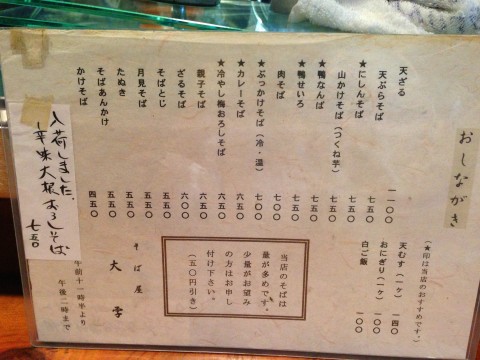 おしながき
(★印は当店のおすすめです。)
天ざる 一一〇〇
天ぷらそば
★にしんそば 七五〇
山かけそば(つくね芋)
★鴨なんば
★鴨せいろ
肉そば
★ぶっかけそば(冷・温) 七〇〇
★カレーそば 六五〇
★冷やし梅おろしそば 六五〇
親子そば
ざるそば 六〇〇
そばとじ 五五〇
月見そば 五五〇
たぬき 五五〇
そばあんかけ 五五〇
かけそば 四五〇
天むす(一ヶ) 一四〇
おにぎり(一ヶ) 一〇〇
白ご飯 一〇〇
当店のそばは
量が多めです。
少量がお望み
の方はお申し
付け下さい。
(五〇円引き)
そば屋
大字
午前十一時半より
午後二時まで
入荷しました、
辛味大根おろしそば
七五〇